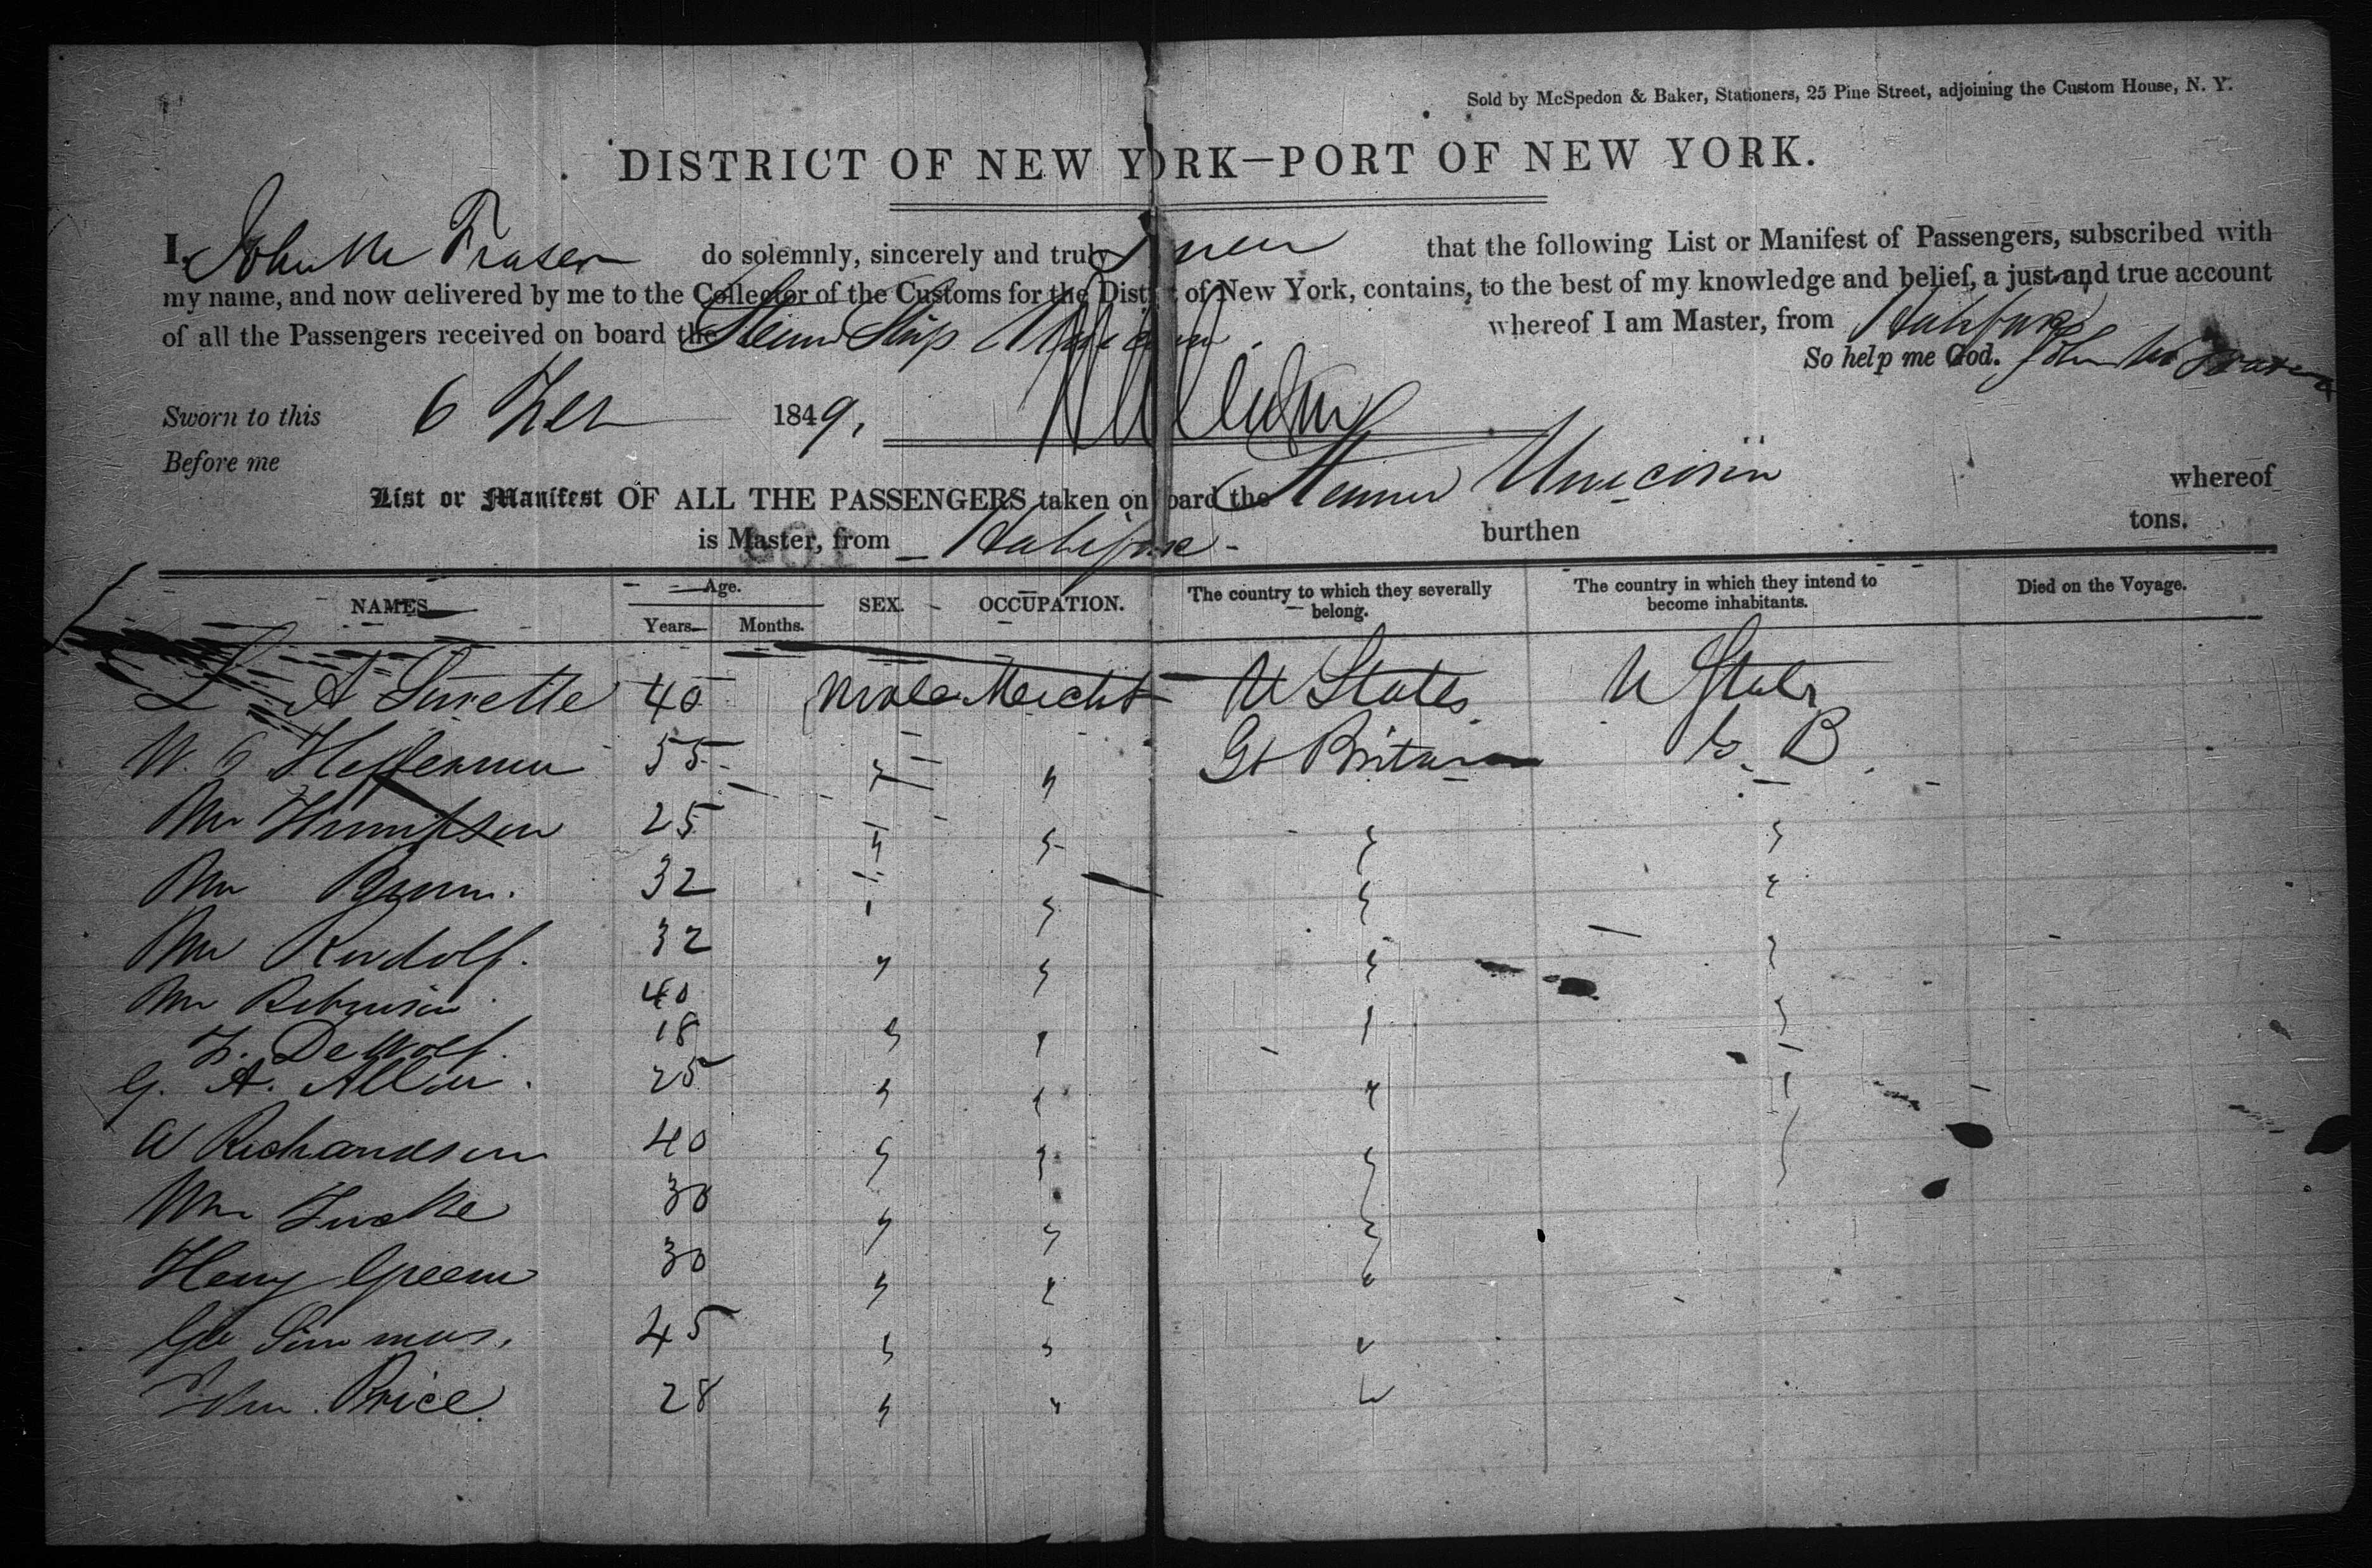 Sold by McSpedon & Baker, Stationers, 25 Pine Street, adjoining the Custom House, N. Y.
DISTRICT OF NEW YORK—PORT OF NEW YORK.
I, John M Fraser do solemnly, sincerely and truly swear that the following List or Manifest of Passengers, subscribed with
my name, and now delivered by me to the Collector of the Customs for the District of New York, contains, to the best of my knowledge and belief, a just and true account
of all the Passengers received on board the Steam Ship Unicorn whereof I am Master, from Halifax
So help me God. John M Fraser
Sworn to this 6 1849,
Before me
List or Manifest OF ALL THE PASSENGERS taken on board the Steamer Unicorn whereof
is Master, from Halifax burthen tons.
NAMES Age. Years. Months. SEX. OCCUPATION. The country to which they severally belong. The country in which they intend to become inhabitants. Died on the Voyage.
L A 40 Male Mercht U States U States
W. 55 " " Gt Britain G. B
Mr 25 " " " "
Mr 32 " " " "
Mr Rudolf. 32 " " " "
Mr Robinson 40 " " " "
DeWolf. 18
G. A. Allan. 25 " " " "
W Richardson 40 " " " "
30 " " "
Henry Green 30 " " "
Geo Simmons. 45 " " "
John Price. 28 " " "